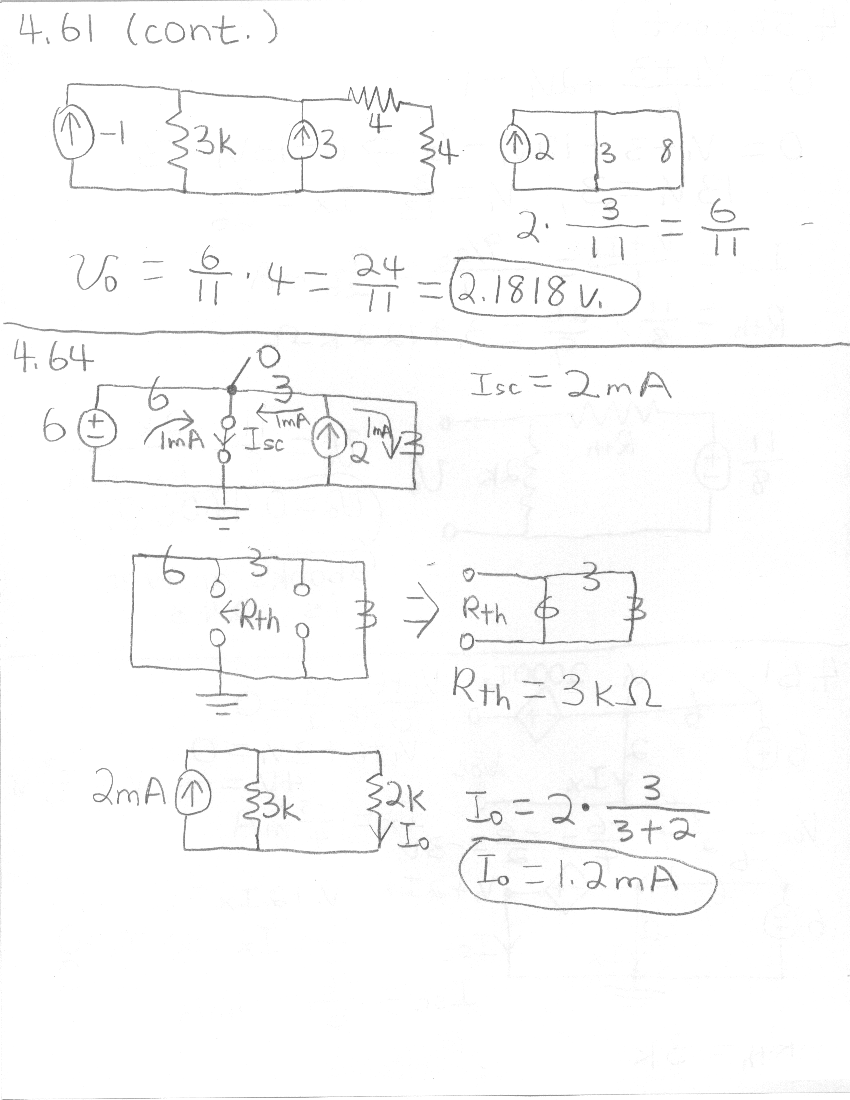 4.61 (cont.)
-1 3k 3 4 4
2 3 8
2 · 3/11 = 6/11
v₀ = 6/11 · 4 = 24/11 = 2.1818 v.
4.64
0
6 6 3 3
1mA Isc 1mA 2 1mA
Isc = 2mA
6 3 3
←Rth
⇒
3
Rth 6 3
Rth = 3kΩ
2mA 3k 2k
I₀
I₀ = 2 · 3/(3+2)
I₀ = 1.2mA